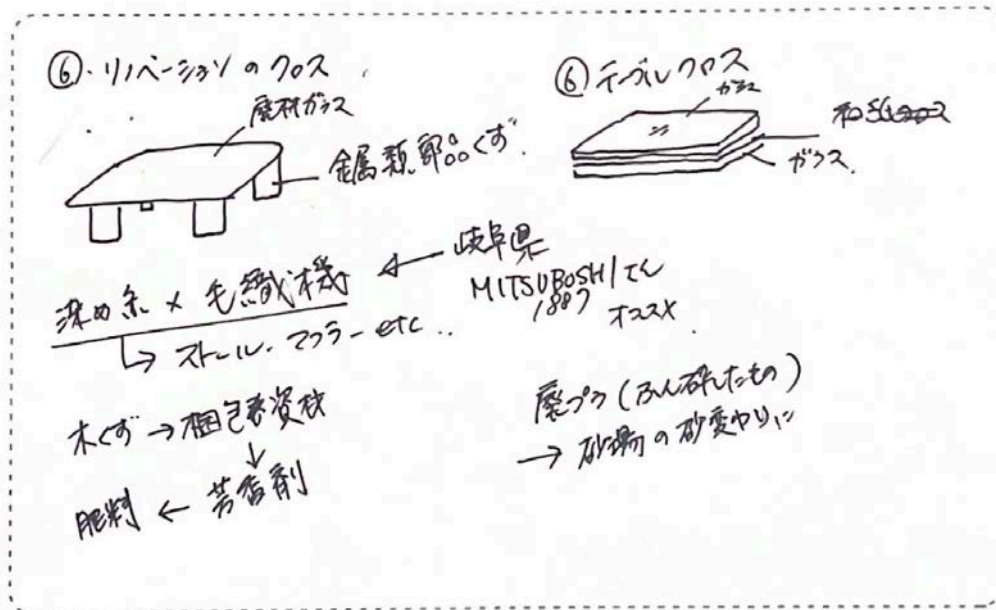 ⑥・リノベーションのクロス
廃材ガラス
金属類部品くず
⑥テーブルクロス
ガラス
ガラス
染め糸×毛織機 ← 岐阜県
MITSUBOSHI
1887
オススメ
↳ ストール・マフラーetc..
木くず→梱包資材
↓
肥料 ← 芳香剤
廃プラ(ふん砕したもの)
→ 砂場の砂変わりに